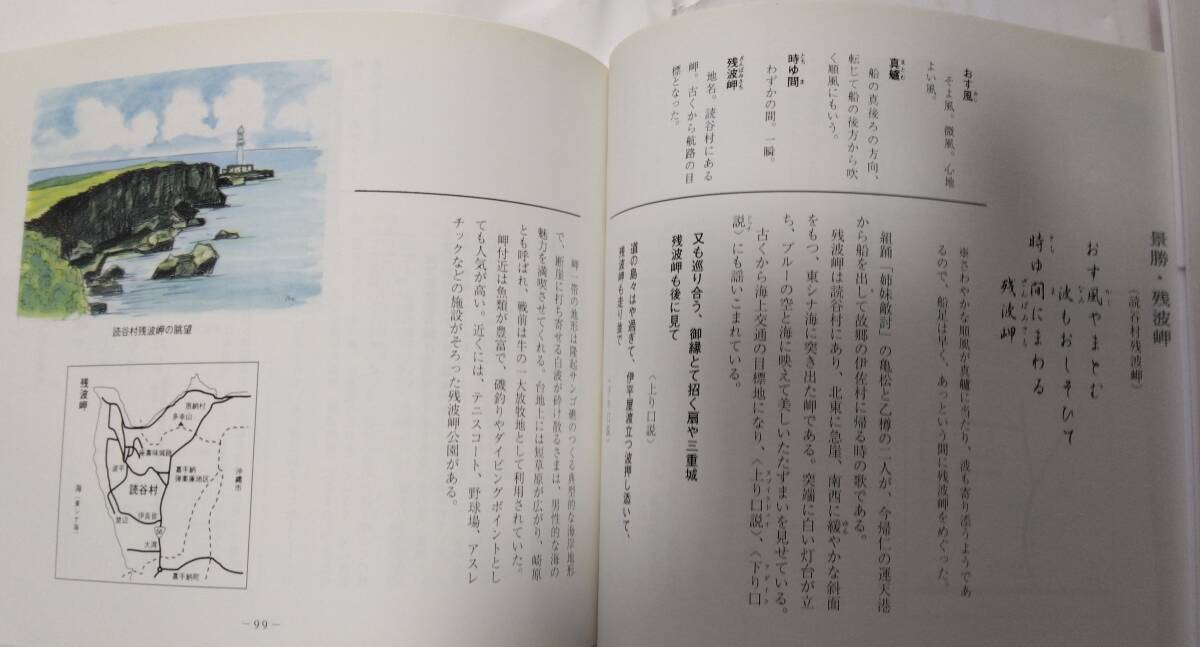 景勝・残波岬
(読谷村残波岬)
おす風やまとむ
波もおしそひて
時ゆ間にまわる
残波岬
※さわやかな順風が真艫に当たり、波も寄り添うようであ
るので、船足は早く、あっという間に残波岬をめぐった。
おす風
そよ風。微風。心地
よい風。
真艫
船の真後ろの方向、
転じて船の後方から吹
く順風にもいう。
時ゆ間
わずかの間。一瞬。
残波岬
地名。読谷村にある
岬。古くから航路の目
標となった。
組踊「姉妹敵討」の亀松と乙樽の二人が、今帰仁の運天港
から船を出して故郷の伊佐村に帰る時の歌である。
残波岬は読谷村にあり、北東に急崖、南西に緩やかな斜面
をもつ、東シナ海に突き出た岬である。突端に白い灯台が立
ち、ブルーの空と海に映えて美しいたたずまいを見せている。
古くから海上交通の目標地になり、〈上り口説〉、〈下り口
説〉にも謡いこまれている。
又も巡り合う、御縁とて招く扇や三重城
残波岬も後に見て
〈上り口説〉
道の島々はや過ぎて、伊平屋渡立つ波押し添いて、
残波岬も走り並で
岬一帯の地形は隆起サンゴ礁のつくる典型的な海岸地形
で、断崖に打ち寄せる白波が砕け散るさまは、男性的な海の
魅力を満喫させてくれる。台地上には短草原が広がり、崎原
とも呼ばれ、戦前は牛の一大放牧地として利用されていた。
岬付近は魚類が豊富で、磯釣りやダイビングポイントとし
ても人気が高い。近くには、テニスコート、野球場、アスレ
チックなどの施設がそろった残波岬公園がある。
読谷村残波岬の眺望
残波岬
恩納村
多幸山
座喜味城跡
嘉手納
弾薬庫地区
沖縄市
波平
読谷村
楚辺
伊良皆
大湾
58
嘉手納町
海(東シナ海)
－99－